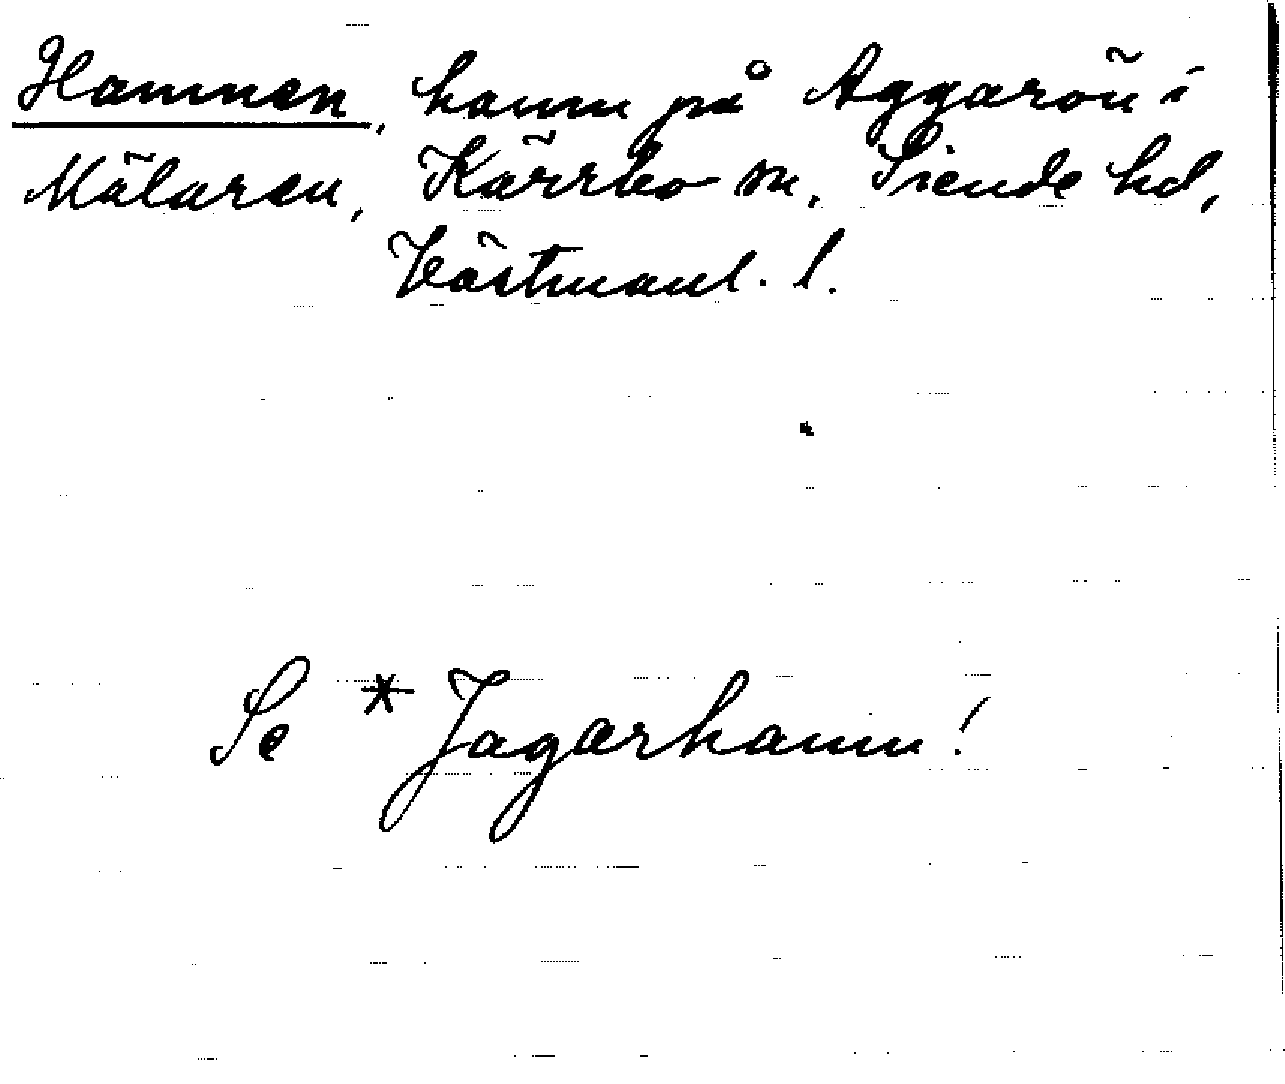 Hamnen, hamn på Aggarön i
Mälaren, Kärrbo sn, Siende hd,
Västmanl. l.
Se * Jagarhamn!